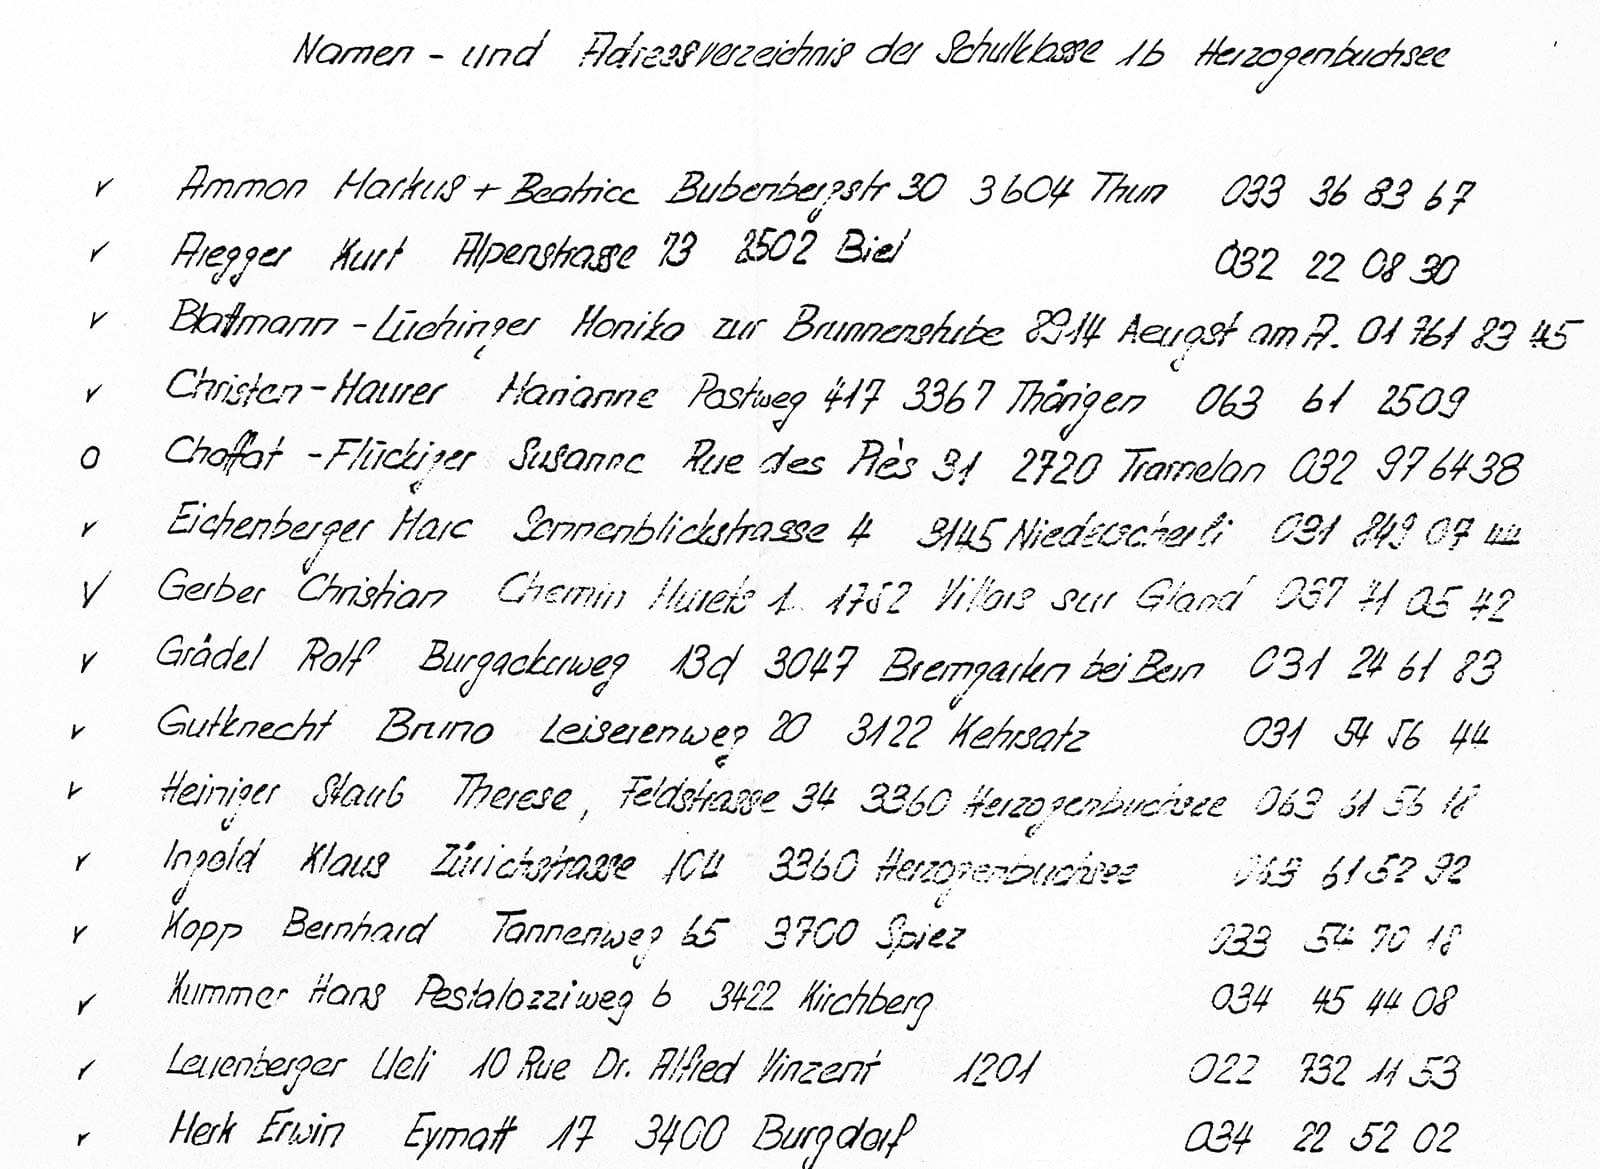 Namen - und Adressverzeichnis der Schulklasse 1b Herzogenbuchsee
v Ammon Markus + Beatrice Bubenbergstr 30 3604 Thun 033 36 83 67
v Aregger Kurt Alpenstrasse 73 2502 Biel 032 22 08 30
v Blattmann - Lüchinger Monika zur Brunnenstube 8914 Aeugst am A. 01 761 83 45
v Christen - Maurer Marianne Postweg 417 3367 Thörigen 063 61 2509
o Choffat - Flückiger Susanne Rue des Prés 31 2720 Tramelan 032 97 6438
v Eichenberger Marc Sonnenblickstrasse 4 3145 Niederscherli 031 849 07 44
v Gerber Christian Chemin 1 1752 Villars sur Gland 037 41 05 42
v Grädel Rolf Burgackerweg 13d 3047 Bremgarten bei Bern 031 24 61 83
v Gutknecht Bruno Leiserenweg 20 3122 Kehrsatz 031 54 56 44
v Heiniger Staub Therese, Feldstrasse 34 3360 Herzogenbuchsee 063 61 56 18
v Ingold Klaus Zürichstrasse 104 3360 Herzogenbuchsee 063 61 52 92
v Kopp Bernhard Tannenweg 65 3700 Spiez 033 54 70 18
v Kummer Hans Pestalozziweg 6 3422 Kirchberg 034 45 44 08
v Leuenberger Ueli 10 Rue Dr. Alfred Vinzent 1201 022 732 11 53
v Merk Erwin Eymatt 17 3400 Burgdorf 034 22 52 02